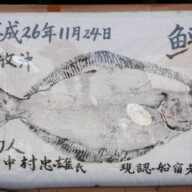 平成26年11月24日
牧沖
人
中村忠雄氏
現認・船宿